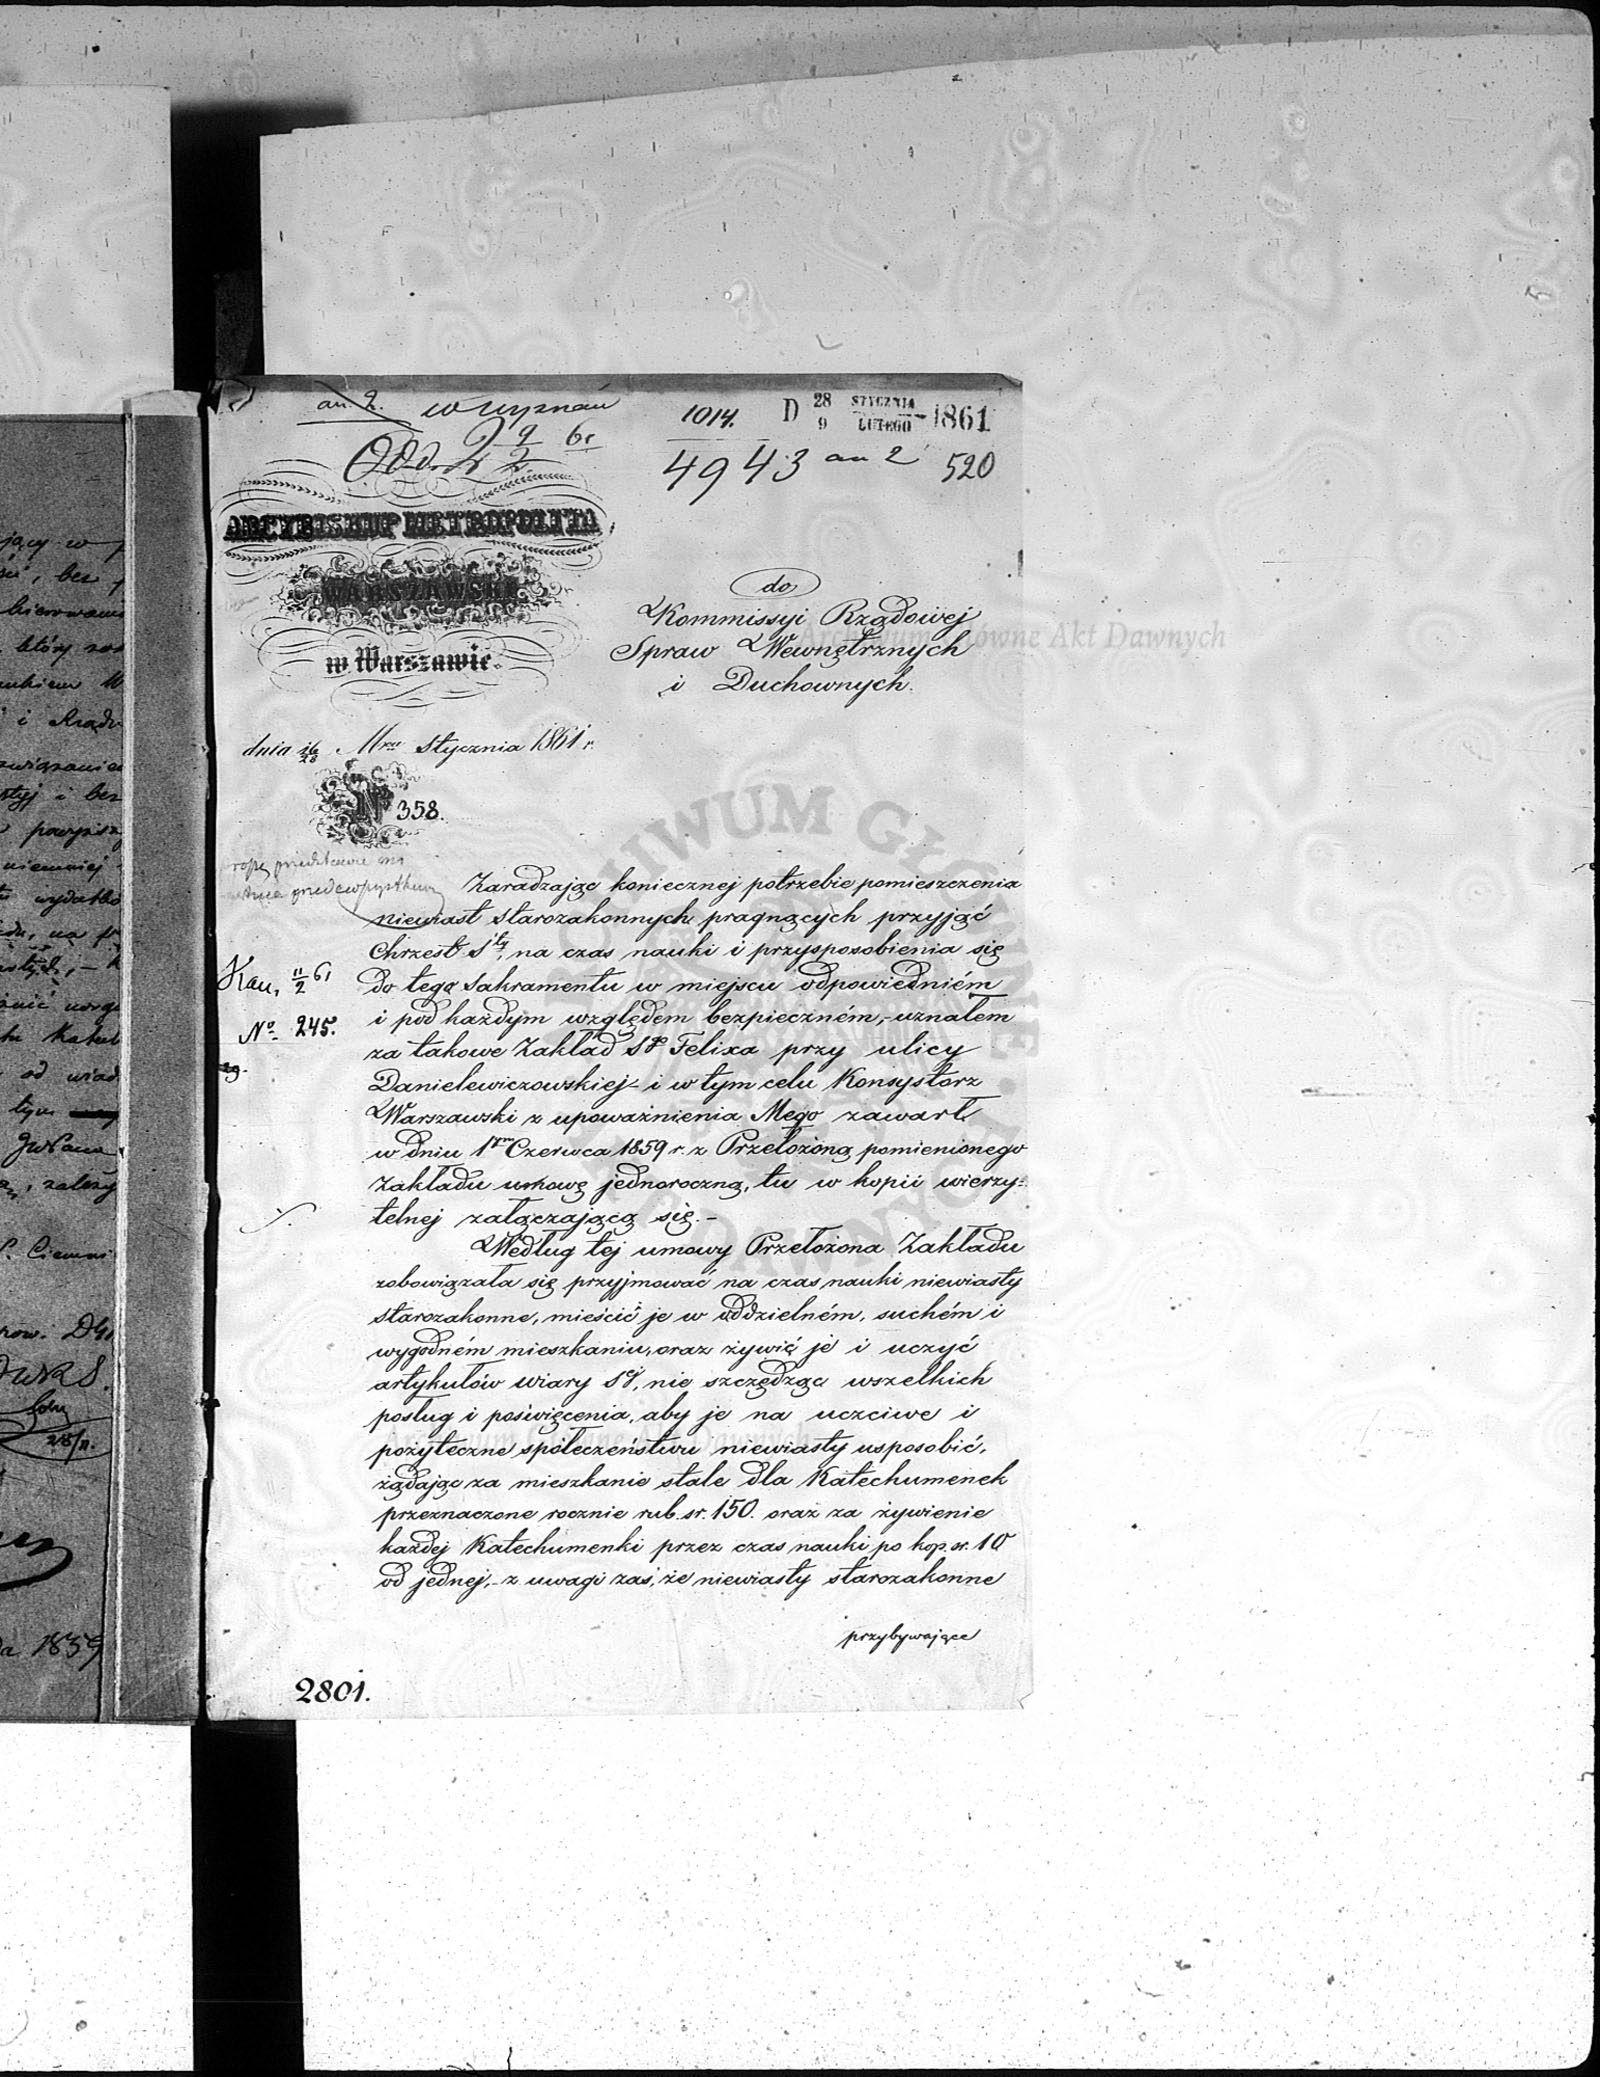 an. 2. w wyznań
1014. D 28 STYCZNIA 1861
9 LUTEGO
4943 an 2 520
ARCYBISKUP METROPOLITA
WARSZAWSKI
w Warszawie.
do
Kommissyi Rządowej
Spraw Wewnętrznych
i Duchownych.
dnia 16/28 Mca Stycznia 1861 r.
No 358.
Zaradzając koniecznej potrzebie pomieszczenia
niewiast starozakonnych pragnących przyjąć
Chrzest Sty, na czas nauki i przysposobienia się
do tego Sakramentu w miejscu odpowiedniém
i pod każdym względem bezpieczném,- uznałem
za takowe Zakład Sgo Felixa przy ulicy
Danielewiczowskiej i w tym celu Konsystorz
Warszawski z upoważnienia Mego zawarł
w dniu 1ym Czerwca 1859 r. z Przełożoną pomienionego
Zakładu umowę jednoroczną, tu w kopii wierzy-
telnej załączającą się.-
Według tej umowy Przełożona Zakładu
zobowiązała się przyjmować na czas nauki niewiasty
starozakonne, mieścić je w oddzielném, suchém i
wygodném mieszkaniu, oraz żywić je i uczyć
artykułów wiary Sej, nie szczędząc wszelkich
posług i poświęcenia, aby je na uczciwe i
pożyteczne społeczeństwu niewiasty usposobić,
żądając za mieszkanie stale dla Katechumenek
przeznaczone rocznie rub. sr. 150. oraz za żywienie
każdej Katechumenki przez czas nauki po kop. sr. 10
od jednej,- z uwagi zaś, że niewiasty starozakonne
przybywające
Kan. 11/2 61
No 245.
2801.
jący w
bez
który
i Rządu
i bez
niemniej
wydatko
od wiad
tym
zależy
28/11.
1859
Archiwum Główne Akt Dawnych
Archiwum Główne Akt Dawnych